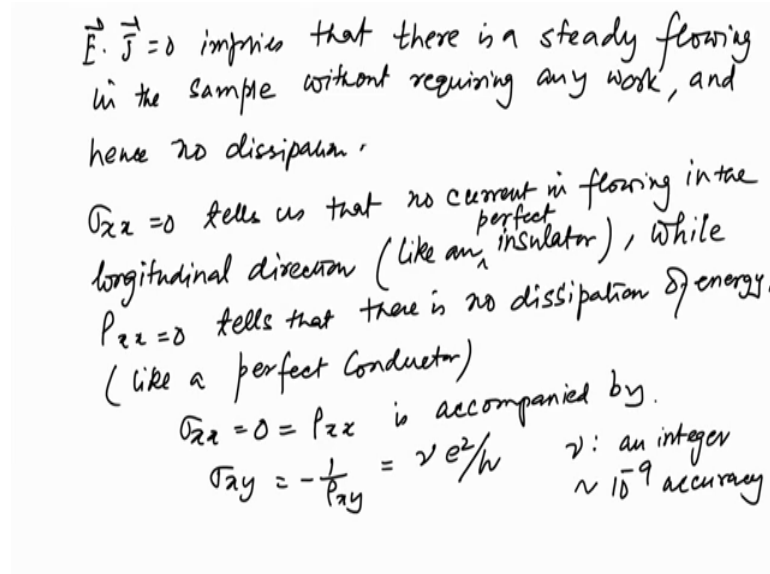 E⃗. J⃗ = 0 implies that there is a steady flowing
in the sample without requiring any work, and
hence no dissipation.
σxx = 0 tells us that no current is flowing in the
longitudinal direction (like an perfect insulator), while
ρxx = 0 tells that there is no dissipation of energy.
(like a perfect conductor)
σxx = 0 = ρxx is accompanied by.
σxy = -1/ρxy = ν e²/h ν: an integer
~ 10⁻⁹ accuracy